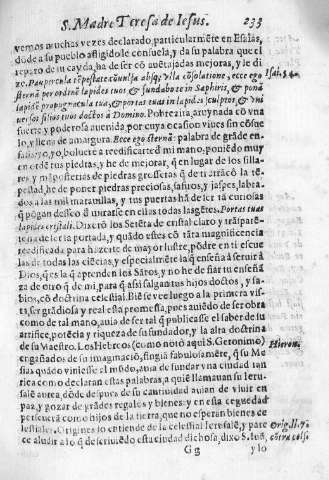 S. Madre Teresa de Iesus. 233
vemos muchas vezes declarado, particularmēte en Esaías,
dōde a su pueblo afligido le consuela, y da su palabra que el
reparo de su cayda, ha de ser cō auētajadas mejoras, y le di
ze. Paupercula tēpestate cōuulsa absq; vlla cōsolatione, ecce ego Isai. 54.
sternā per ordinē lapides tuos & fundabo te in Saphiris, & ponā
iaspidē propugnacula tua, & portas tuas in lapides sculptos, & vni
versos filios tuos doctos à Domino. Pobrezita, arruynada cō vna
fuerte y poderosa auenida, por cuya ocasion viues sin cōsue
lo, y llena de amargura. Ecce ego sternā: palabra de grāde en-
yo, yo, boluere a reedificarte de mi mano, poniēdo muy
en ordē tus piedras, y he de mejorar, q̄ en lugar de los silla-
res, y māposterias de piedras grosseras q̄ de ti arrācò la tē-
pestad, he de poner piedras preciosas, safiros, y jaspes, labra
dos a las mil marauillas, y tus puertas hā de ser tā curiosas
q̄ pōgan desseo d̄ mirarse en ellas todas las gētes. Portas tuas
lapides cristali. Dixerō los Setēta de cristal claro y trāsparē-
te ha de ser la portada, y quādo estes cō tāta magnificencia
reedificada, para hazerte de mayor lustre, pōdre en ti escue
las de todas las ciēcias, y especialmēte la q̄ enseña à seruir à
Dios, q̄ es la q̄ aprenden los Sātos, y no he de fiar tu enseñā
za de otro q̄ de mi, para q̄ assi salgan tus hijos doctos, y sa-
bios, cō doctrina celestial. Biē se vee luego a la primera vis-
ta, ser grādiosa y real esta promessa, pues auiēdo de ser obra
como de tal mano, auia de ser tal q̄ publicasse el saber de su
artifice, potēcia y riqueza de su fundador, y la alta doctrina
de su Maestro. Los Hebreos (como notò aqui S. Geronimo) Hieron.
engañados de su imaginaciō, fingiā fabulosamēte, q̄ su Me
sias quādo viniesse al mūdo, auia de fundar vna ciudad tan
rica como declaran estas palabras, a quiē llamauan su Ierusa-
lē aurea, dōde despues de su cautiuidad auian de viuir en
paz, y gozar de grādes regalos y bienes: y en esta ceguedad
perseuerā como hijos de la tierra, que no esperan bienes ce
lestiales. Origines lo entiende de la celestial Ierusalē, y pare Orig. li. 7.
ce aludir a lo q̄ descriuiēdo esta ciudad dichosa, dixo S. Iuā, cōtra celsū
Gg ylo